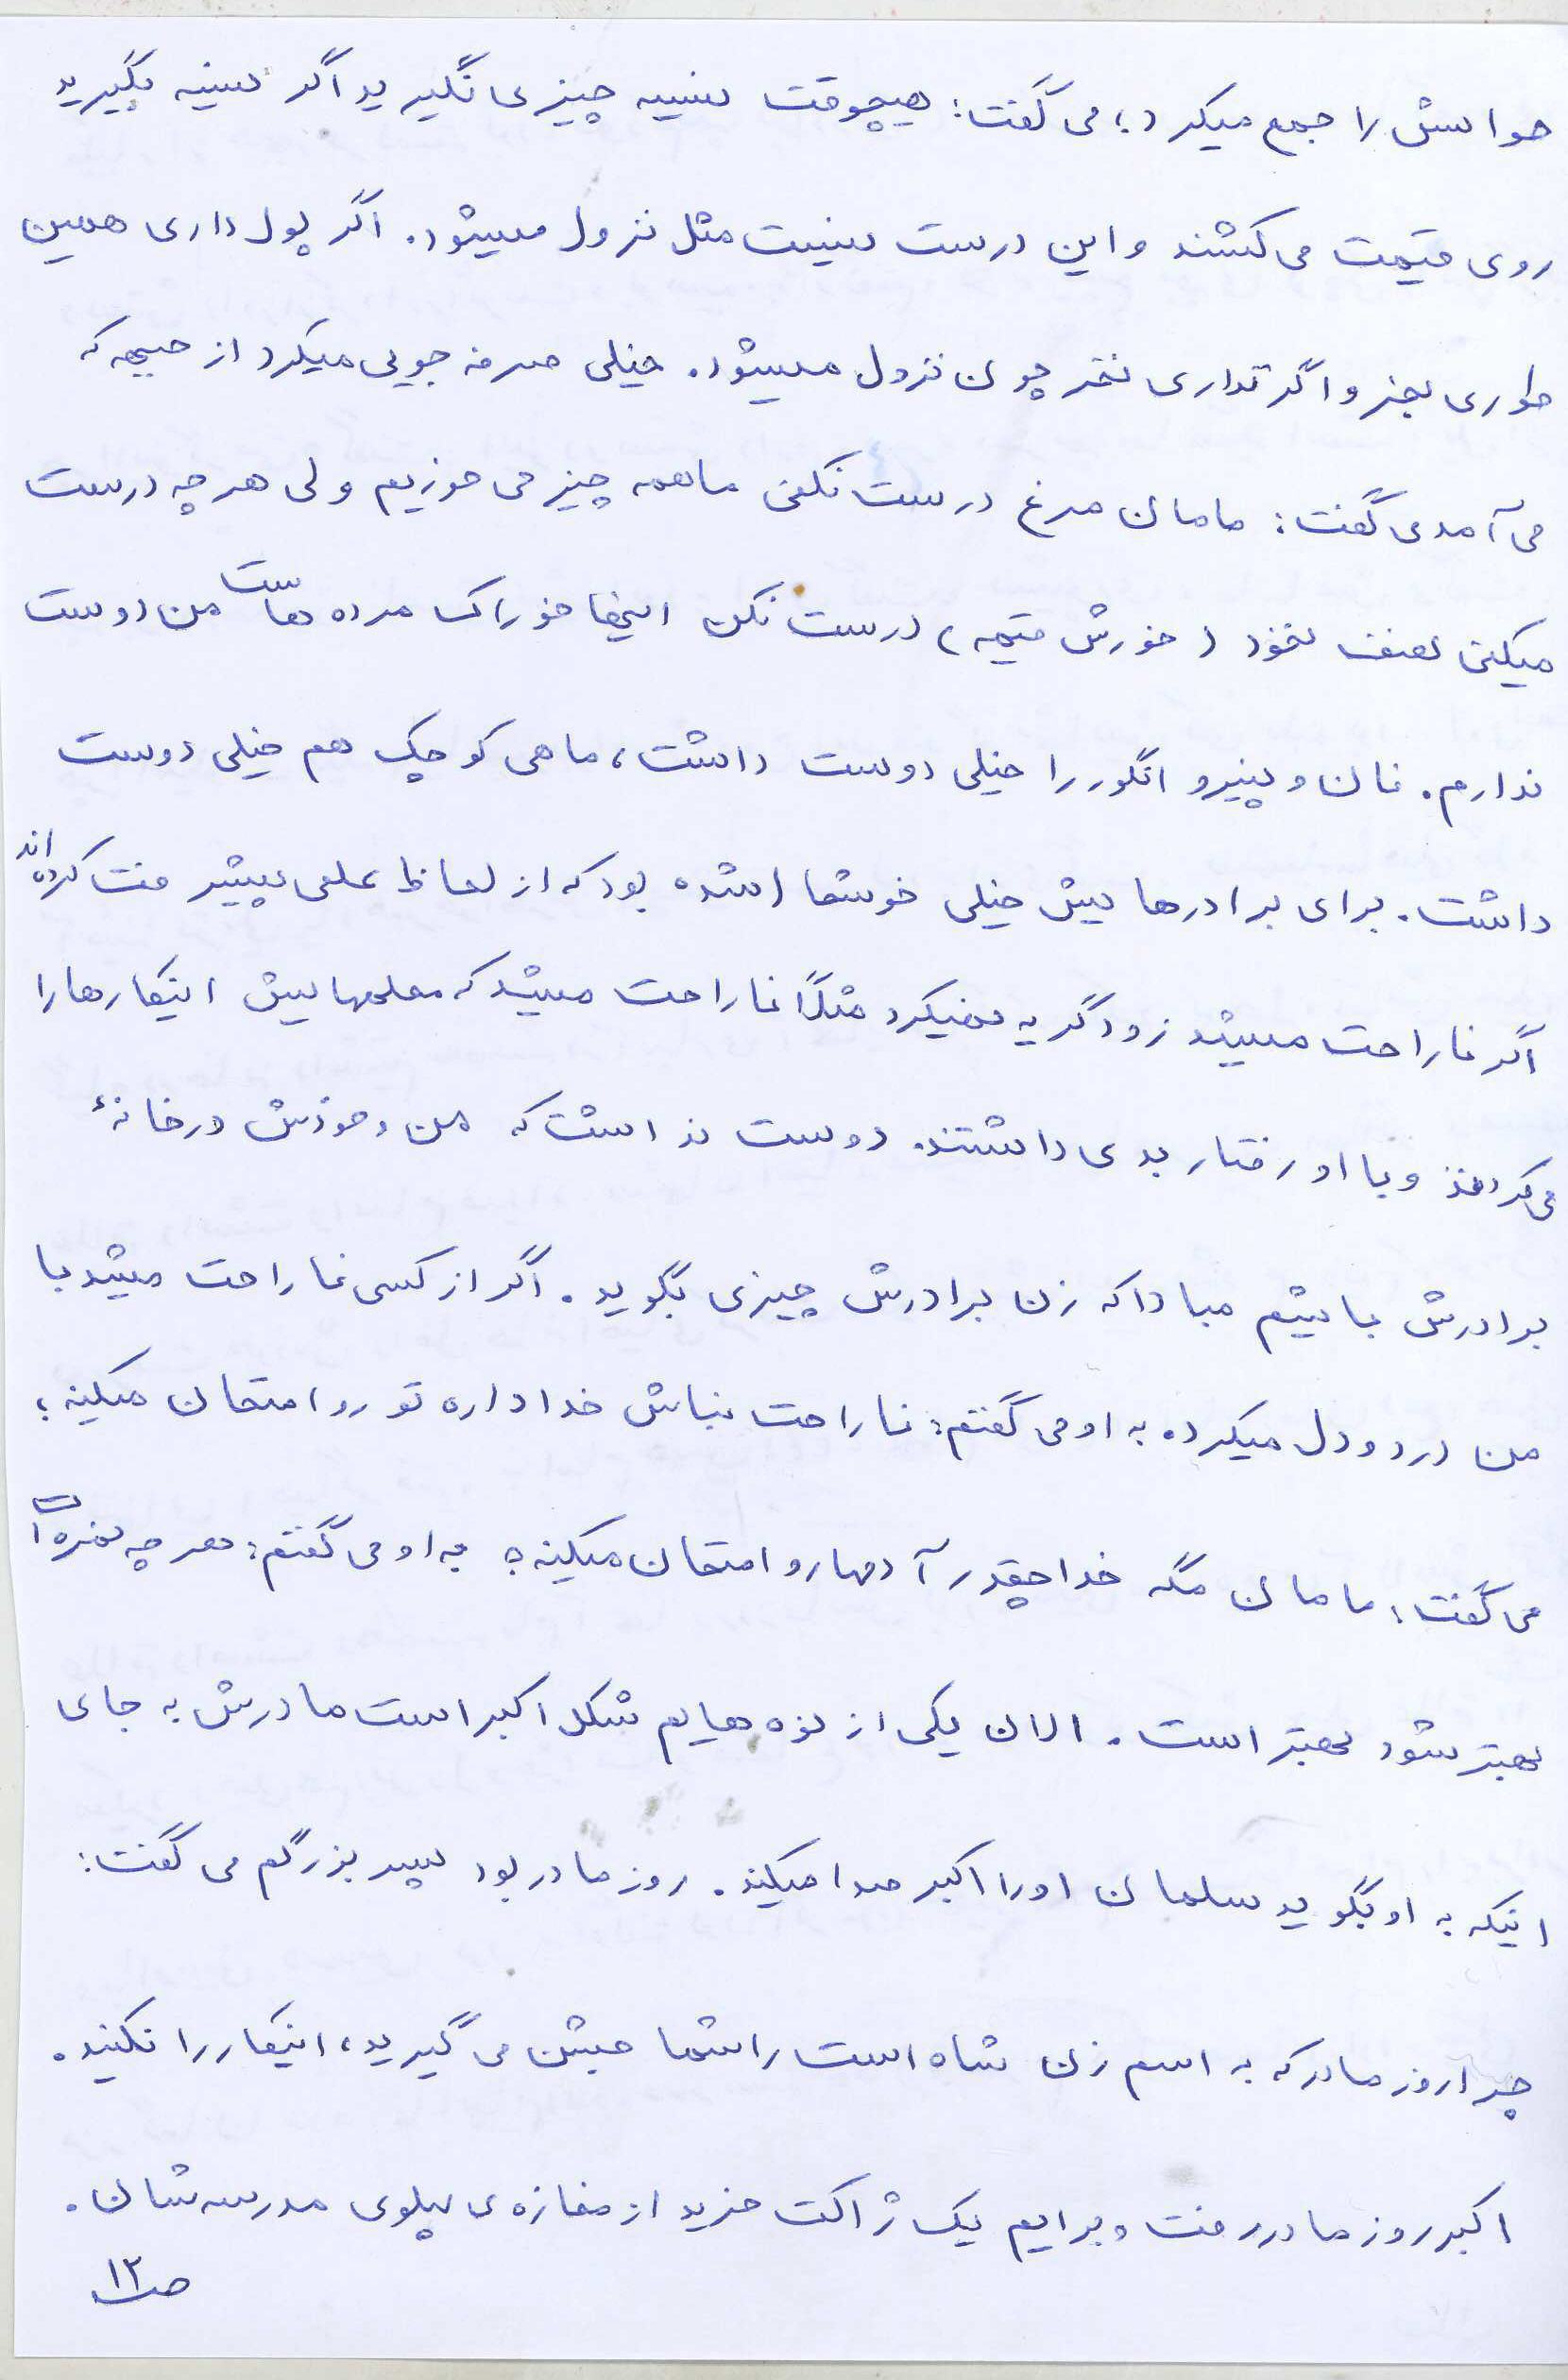 حواسش را جمع میکرد؛ می گفت: هیچوقت نسیه چیزی نگیرید اگر نسیه بگیرید
روی قیمت می کشند و این درست نیست مثل نزول میشود. اگر پول داری همین
طوری بخر و اگر نداری نخر چون نزول میشود. خیلی صرفه جویی میکرد از جبهه که
می آمدی گفت: مامان مرغ درست نکنی ما همه چیز می خوریم ولی هر چه درست
میکنی نخود (خورش قیمه) درست نکن اینها خوراک مرده هاست من دوست
ندارم. نان و پنیر و انگور را خیلی دوست داشت، ماهی کوچک هم خیلی دوست
داشت. برای برادرهایش خیلی خوشحال شده بود که از لحاظ علمی پیشرفت کرده اند
اگر ناراحت میشد زود گریه نمیکرد مثلاً ناراحت میشد که معلمهایش اینکارها را
می کردند و با او رفتار بدی داشتند. دوست نداشت که من و خودش در خانۀ
برادرش باشیم مبادا که زن برادرش چیزی بگوید. اگر از کسی ناراحت میشد با
من درد و دل میکرد. به او می گفتم: ناراحت نباش خدا داره تو رو امتحان میکنه؛
می گفت: مامان مگه خدا چقدر آدمها رو امتحان میکنه؟ به او می گفتم: هر چه نمره ات
بهتر شود بهتر است. الان یکی از نوه هایم شکل اکبر است مادرش به جای
اینکه به او بگوید سلمان او را اکبر صدا میکند. روز مادر بود پدر بزرگم می گفت:
چرا روز مادر که به اسم زن شاه است را شما جشن می گیرید، اینکار را نکنید.
اکبر روز مادر رفت و برایم یک ژاکت خرید از مغازه ی پهلوی مدرسه شان.
ص۱۲